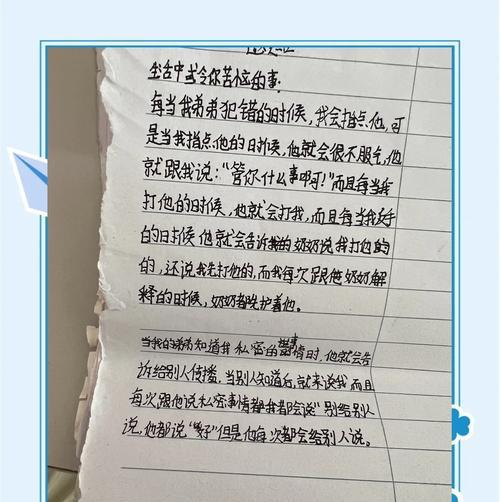 生活中或令你苦恼的事:
每当我弟弟犯错的时候,我会指点他,可
是当我指点他的时候,他就会很不服气,他
就跟我说:"管你什么事啊!"而且每当我
打他的时候,他就会打我,而且每当我
的时候他就会告诉我的奶奶说我打他的
的,还说我先打他的,而我每次跟他奶奶解
释的时候,奶奶都晓护着他。
当我的弟弟知道我私密的事情时,他就会告
诉给别人传播,当别人知道后,就来说我而且
每次跟他说私密事情都我都会说"别给别人
说,他都说"好"但是他每次都会给别人说。